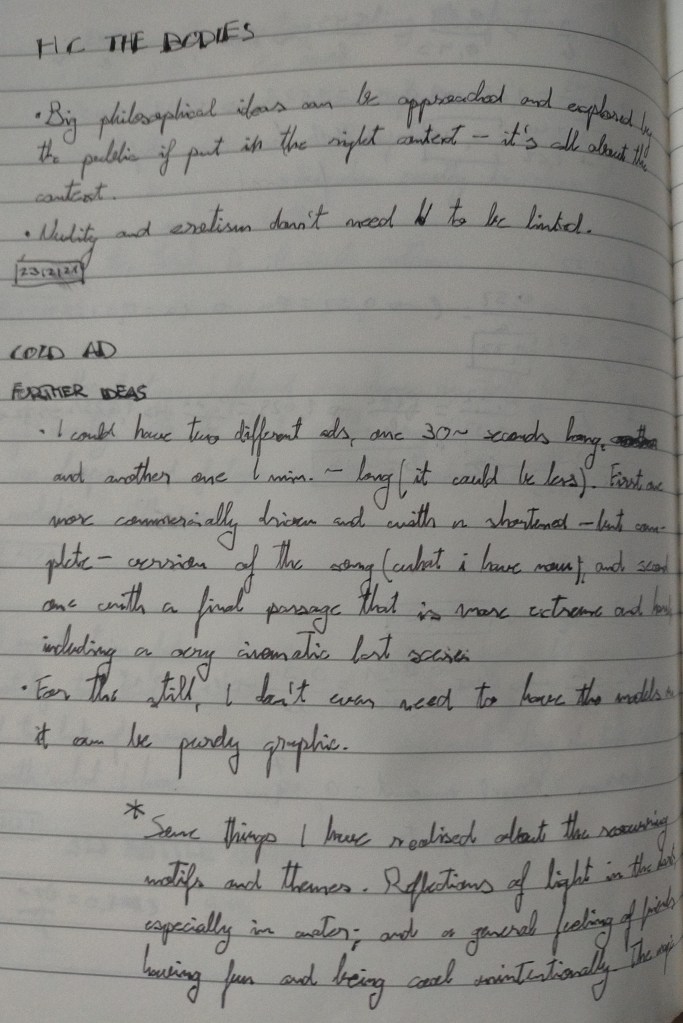 HC THE BODIES
• Big philosophical ideas can be approached and explored by
the public if put in the right context – it's all about the
context.
• Nudity and erotism don't need to be linked.
23/2/21
COLD AD
FURTHER IDEAS
• I could have two different ads, one 30~ seconds long,
and another one 1 min. ~ long (it could be less). First one
more commercially driven and with a shortened – but com-
plete – version of the song (what i have now), and second
one with a final passage that is more extreme and
including a very cinematic last
• For the still, I don't even need to have the models
it can be purely graphic.
* Some things I have realised about the recurring
motifs and themes. Reflections of light in the
especially in water; and a general feeling of friends
having fun and being cool unintentionally. The